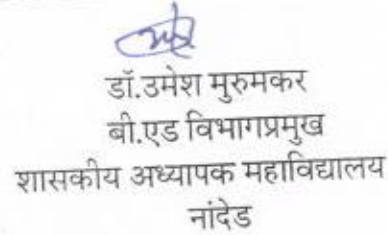 डॉ.उमेश मुरुमकर
बी.एड विभागप्रमुख
शासकीय अध्यापक महाविद्यालय
नांदेड